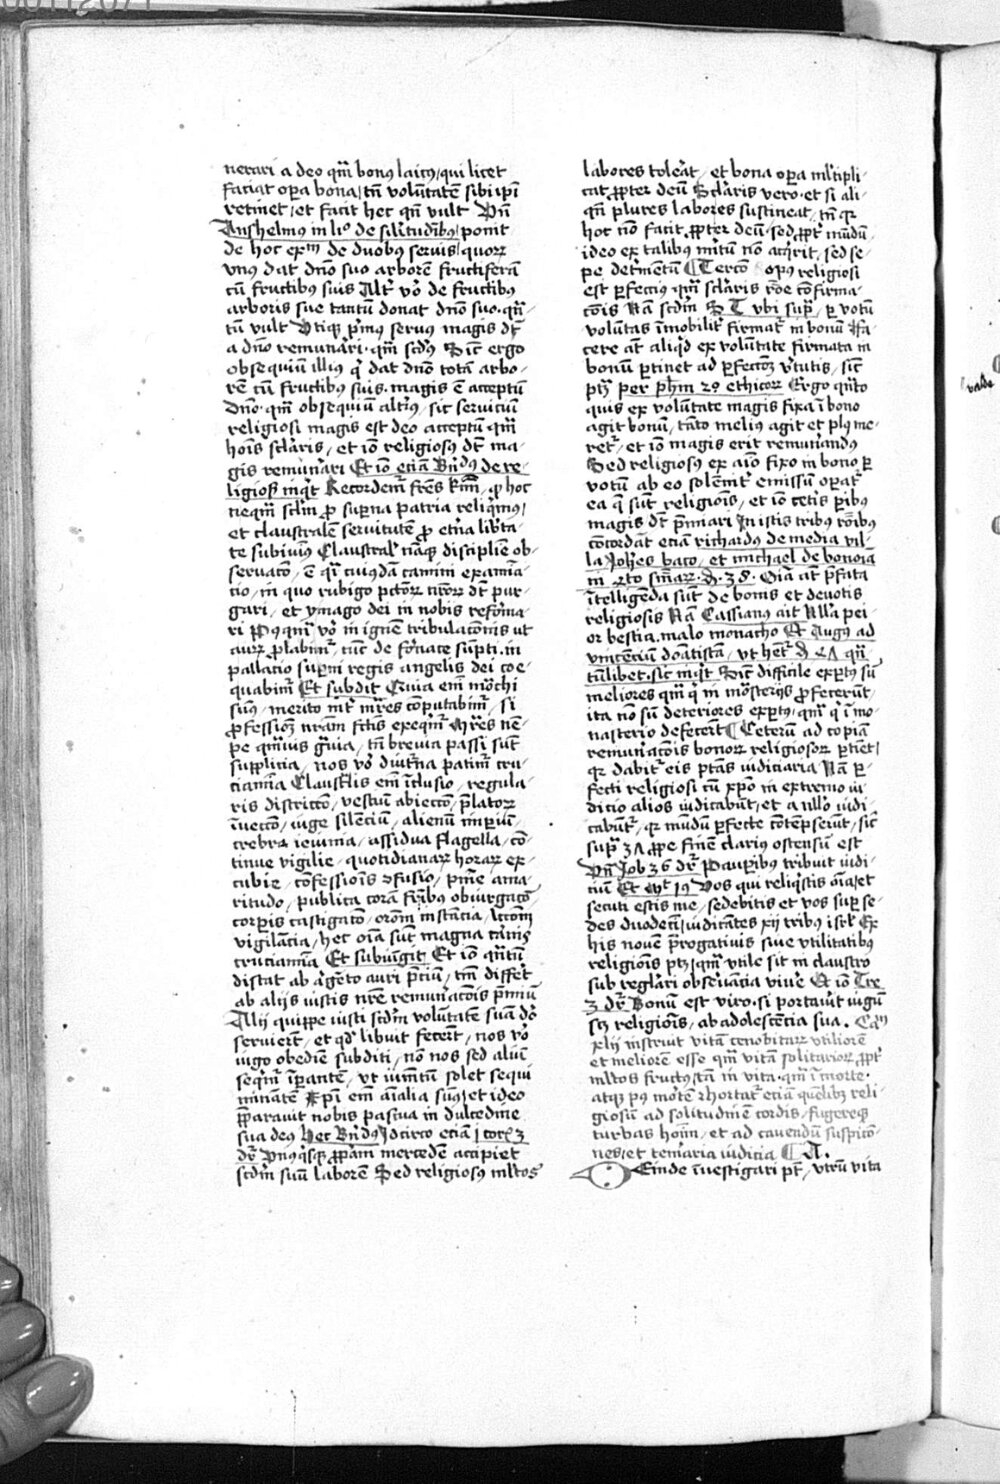 nerari a deo qm̄ bonus laicus / qui licet
faciat opera bona / tn̄ volūtatē sibi ipī
retinet / et facit hec qn̄ vult Vn̄
Anshelmus in li° de silitudībus / ponit
de hoc exm̄ de duobus seruis / quorꝝ
vnus dat dn̄o suo arborē fructiferā
cū fructibus suis Alt' vo de fructibus
arboris sue tantū donat dn̄o suo · qn̄-
tū vult Vtiqꝫ p'mus seruus magis dꝫ
a dn̄o remun'ari · qm̄ scd'us Sic ergo
obsequiū illius qi dat dn̄o totā arbo-
rē cū fructibus suis · magis ē acceptū
dn̄o · qm̄ obsequiū alt'ius / sic seruiciū
religiosi magis est deo acceptū qm̄
hoīs sc'laris / et iō religiosus dꝫ ma-
gis remun'ari Et iō eciā Bn̄dus de re-
ligiosis inqt Recordem̄ fr̄es k'mi / qꝫ hoc
neqm̄ sc'lm ꝓ sup'na patria reliqimus /
et claustralē seruitutē ꝓ et'na lib'ta-
te subiuimus Claustral' nāqꝫ discipline ob-
seruacō / ē qi cuiusdā camini examina-
cio / in quo rubigo pctōrꝝ nr̄orꝝ dꝫ pur-
gari / et ymago dei in nobis reforma-
ri Pꝰqm̄ vo in ignē tribulacōnis ut
aurꝝ ꝓbabim̄ / tūc de fornace sūpti · in
pallacio sup'ni regis angelis dei coe-
quabim̄ Et subdit Ciuica em̄ mo'chi
sumus / merito int' m̄res cōputabim̄ / si
ꝓfessionē nr̄am fc'tis exeqm̄ Mr̄es nē-
pe qm̄uis g'uia / tn̄ breuia passi sūt
supplicia / nos vo diut'na patim̄ cru-
ciamīa Claust'lis em̄ īclusio / regula-
ris districcō / vestiū abieccō / p'latorꝝ
īueccō / iuge silēciū / alienū imperiū /
crebra ieiunia / assidua flagella / cō-
tinue vigilie / quotidianarꝝ horarꝝ ex-
cubie / cōfessionis ꝯfusio / pn̄ie ama-
ritudo / publica corā fr̄ibus obiurgacō /
corporis castigacō / or̄onū instācia / lccōnū
vigilācia / hec oīa sūt magna carnis
cruciamīa Et subiūgit Et iō qn̄tū
distat ab arg'eto auri p'ciū / tm̄ differt
ab alijs iustis nr̄e remun'acōnis p'miū
Alij quippe iusti scdm̄ volūtatē suā dō
seruierūt / et qd' libuit fecerūt / nos vo
iugo obediē subditi / nō nos sed aliū
seqm̄ īp'antē / vt iumētū solet sequi
minantē Xp̄i em̄ aīalia sumus / et ideo
p'parauit nobis pascua in dulcedine
sua deus hec Bn̄dus Idcirco eciā j cor' 3
dꝫ Vnusqisqꝫ ꝓpriam mercedē accipiet
scdm̄ suū laborē Sed religiosus ml'tos
labores tolerat / et bona opera ml'tipli-
cat ꝓpter deū Sc'laris vero · et si ali-
qn̄ plures labores sustineat / tn̄ qꝛ
hoc nō facit ꝓpter deū · sed ꝓpt' mūdū ·
ideo ex talibus m'itū nō acqrit / sed se-
pe det'mentū Tercō opus religiosi
est perfectius qm̄ sc'laris rōe cōfirma-
cōis Nā scdm̄ S T vbi sup' / per votū
volūtas īmobilit' firmat' in bonū Fa-
cere at' aliqid ex volūtate firmata in
bonū p'tinet ad p'fectionē v'tutis / sic
pꝫ per ph̄m 2º ethicorꝝ Ergo qn̄to
quis ex volūtate magis fixa ī bono
agit bonū / tāto melius agit et plus me-
ret' / et iō magis erit remun'andus
Sed religiosus ex aīo fixo in bono per
votū ab eo solēnit' emissū operat'
ea q sūt religionis / et iō cetis paribus
magis dꝫ p'miari In istis tribus rōibus
cōcordāt eciā richardus de media vil-
la Joh̄es baco / et michael de bononia
in 4to sn̄iarꝝ · d · 38 · Oīa at' p'fata
ītelligēda sūt de bonis et deuotis
religiosis Nā Cassianus ait Nlla pei-
or bestia · malo monacho Et Augus ad
vincēciū donatistā / vt het' d qn̄-
tūlibet · sic inqt Sic difficile expertus sū
meliores qm̄ qi in mōsterijs ꝓfecerūt /
ita nō sū deteriores expertus · qm̄ qi ī mo-
nasterio defecerūt Ceterū ad copiā
remun'acōnis bonorꝝ religiosorꝝ p'tiet /
qꝛ dabit' eis ptās iudiciaria Nā per-
fecti religiosi cū xp̄o in extremo iu-
dicio alios iudicabūt / et a nullo iudi-
cabūt' / qꝛ mūdū p'fecte cōtēpserūt / sic
sup' ꝓpe finē clarius ostensū est
Vn̄ Job 36 dꝫ Pauperibus tribuit iudi-
ciū Et mt' 19 Vos qui reliqistis oīa / et
secuti estis me / sedebitis et vos super se-
des duodecī / iudicātes xij tribus isrl' Ex
his nouē p'rogatiuis siue vtilitatibus
religionis pꝫ / qm̄ vtile sit in claustro
sub reglari obseruācia viu'e Et iō Tre
3 dꝫ Bonū est viro · si portauit iugū
sꝫ religionis / ab adolescēcia sua . Cam
xlij instruit vitā cenobitarꝝ vtiliorē
et meliorē esse qm̄ vitā solitariorꝝ ꝓpt'
ml'tos fructus / tā in vita · qm̄ ī morte ·
atqꝫ pꝰ mortē ꝛhortat' eciā quēlibꝫ reli-
giosū ad solitudinē cordis / fugereqꝫ
turbas hoīm / et ad cauendū suspicō-
nes / et temeraria iudicia A .
Deinde īuestigari pt' / vtrū vita
valde